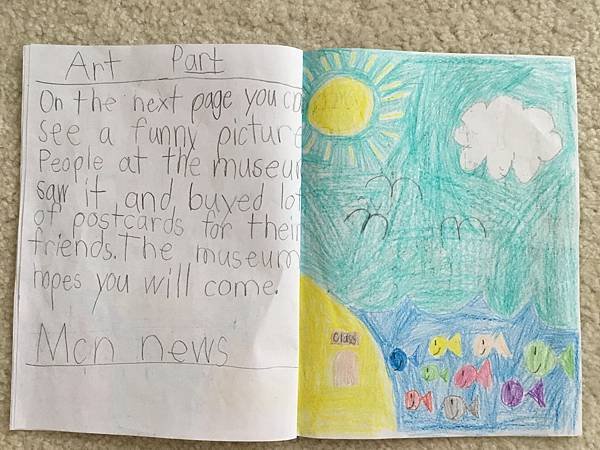 Art Part
On the next page you ca
see a funny picture
People at the museum
saw it and buyed lot
of postcards for their
friends. The museum
hopes you will come.
Mcn news
Glass